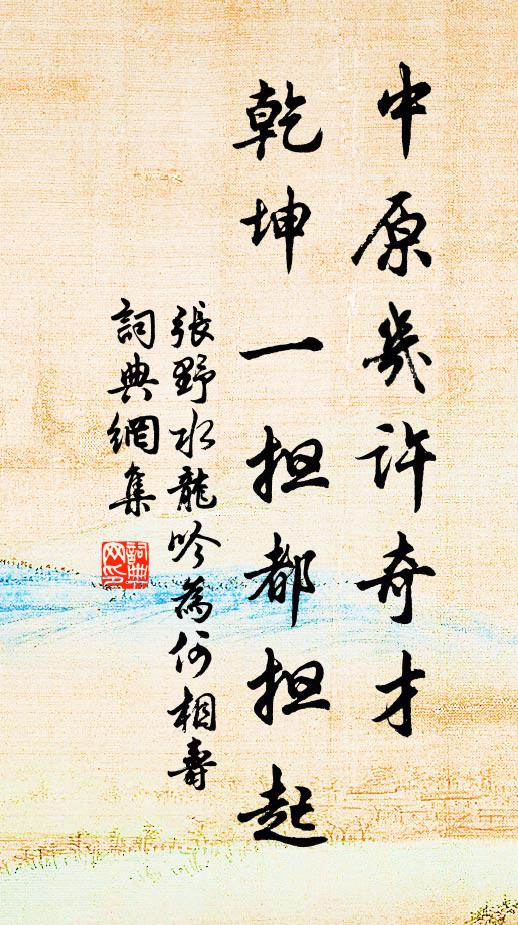 中原幾許奇才
乾坤一担都担起
張野水龍吟為何相壽
詞典網集
詞典
网印